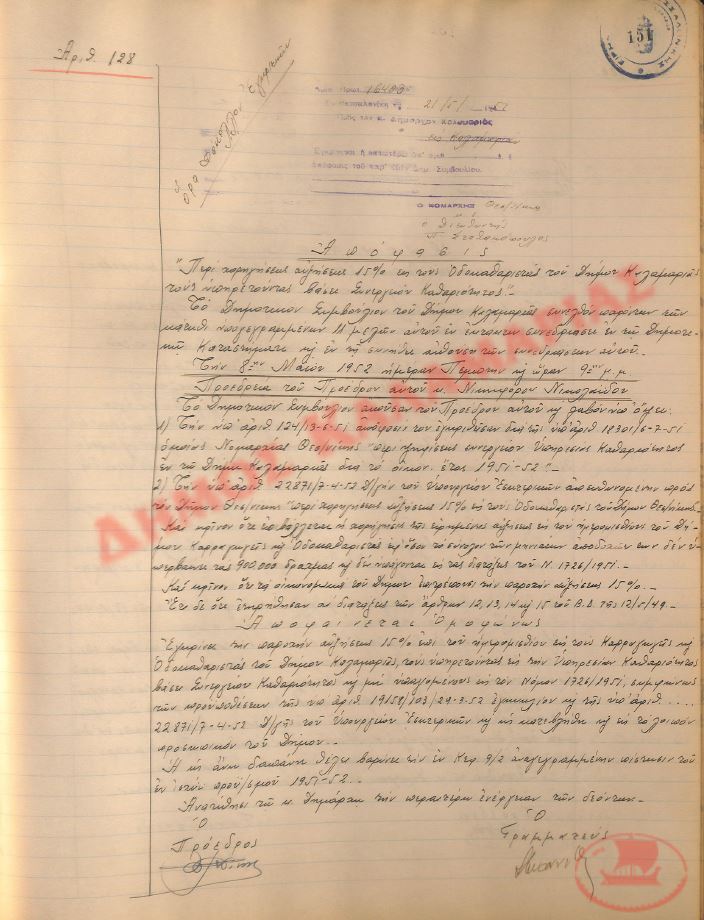 151
Ἀριθ. 128
16400
Ἐν Θεσσαλονίκῃ τῇ 21/5/1952
Πρὸς τὸν κ. Δήμαρχον Καλαμαριᾶς
εἰς Καλαμαριὰν
Ο ΝΟΜΑΡΧΗΣ Θεσ/νίκης
ὁ Διευθυντὴς
Ἀπόφασις
"Περὶ χορηγήσεως αὐξήσεως 15% εἰς τοὺς Ὁδοκαθαριστὰς τοῦ Δήμου Καλαμαριᾶς
τοὺς ὑπηρετοῦντας βάσει Συνεργείου Καθαριότητος".-
Τὸ Δημοτικὸν Συμβούλιον τοῦ Δήμου Καλαμαριᾶς συνελθὸν παρόντων τῶν
κάτωθι ὑπογεγραμμένων 11 μελῶν αὐτοῦ ἐν ἐκτάκτῳ συνεδριάσει ἐν τῷ Δημοτι-
κῷ Καταστήματι κ ἐν τῇ συνήθει αἰθούσῃ τῶν συνεδριάσεων αὐτοῦ.
Τὴν 8ην Μαΐου 1952 ἡμέραν Πέμπτην κ ὥραν 9ην μ.μ.
Προεδρείᾳ τοῦ Προέδρου αὐτοῦ κ. Νικηφόρου Νικολαΐδου
Τὸ Δημοτικὸν Συμβούλιον ἀκοῦσαν τοῦ Προέδρου αὐτοῦ κ λαβὸν ὑπ' ὄψει:
1) Τὴν ὑπ' ἀριθ. 124/13-6-51 ἀπόφασίν του ἐγκριθεῖσαν διὰ τῆς ὑπ' ἀριθ. 18301/6-7-51
ὁμοίας Νομαρχίας Θεσ/νίκης "περὶ ψηφίσεως συνεργείου Ὑπηρεσίας Καθαριότητος
ἐν τῷ Δήμῳ Καλαμαριᾶς διὰ τὸ οἰκον. ἔτος 1951-52".-
2) Τὴν ὑπ' ἀριθ. 22871/7-4-52 Δ/γὴν τοῦ Ὑπουργείου Ἐσωτερικῶν ἀπευθυνομένην πρὸς
τὸν Δῆμον Θεσ/νίκης "περὶ χορηγήσεως αὐξήσεως 15% εἰς τοὺς Ὁδοκαθαριστὰς τοῦ Δήμου Θεσ/νίκης".
Καὶ κρῖνον ὅτι ἐπιβάλλεται ἡ χορήγησις τῆς εἰρημένης αὐξήσεως εἰς τὸ ἡμερομίσθιον τοῦ Δή-
μου Καρραγωγεῖς κ Ὁδοκαθαριστὰς ἐφ' ὅσον τὸ σύνολον τῶν μηνιαίων ἀποδοχῶν των δὲν ὑ-
περβαίνει τὰς 900.000 δραχμὰς κ δὲν ὑπάγονται εἰς τὰς διατάξεις τοῦ Ν. 1726/1951.-
Καὶ κρῖνον ὅτι τὰ οἰκονομικὰ τοῦ Δήμου ἐπιτρέπουσι τὴν παροχὴν αὐξήσεως 15%.-
Ἔτι δὲ ὅτι ἐτηρήθησαν αἱ διατάξεις τῶν ἄρθρων 12, 13, 14 κ 15 τοῦ Β.Δ. τῆς 12/5/49.-
Ἀποφαίνεται Ὁμοφώνως
Ἐγκρίνει τὴν παροχὴν αὐξήσεως 15% ἐπὶ τοῦ ἡμερομισθίου εἰς τοὺς Καρραγωγεῖς κ
Ὁδοκαθαριστὰς τοῦ Δήμου Καλαμαριᾶς, τοὺς ὑπηρετοῦντας εἰς τὴν Ὑπηρεσίαν Καθαριότητος
βάσει Συνεργείου Καθαριότητος κ μὴ ὑπαγομένους εἰς τὸν Νόμον 1726/1951, συμφώνως
τῶν προϋποθέσεων τῆς ὑπ' ἀριθ. 19158/103/29-3-52 ἐγκυκλίου κ τῆς ὑπ' ἀριθ. ....
22871/7-4-52 Δ/γῆς τοῦ Ὑπουργείου Ἐσωτερικῶν κ ὡς κατεβλήθη κ εἰς τὸ λοιπὸν
προσωπικὸν τοῦ Δήμου.-
Ἡ ὡς ἄνω δαπάνη θέλει βαρύνει τὴν ἐν Κεφ. 9/2 ἀναγεγραμμένην πίστωσιν τοῦ
ἐν ἰσχύι προϋ/σμοῦ 1951-52.-
Ἀνατίθησι τῷ κ. Δημάρχῳ τὴν περαιτέρω ἐνέργειαν τῶν δεόντων.-
Ὁ
Πρόεδρος
Ὁ
Γραμματεὺς
ΔΗΜΟΣ ΚΑΛΑΜΑΡΙΑΣ